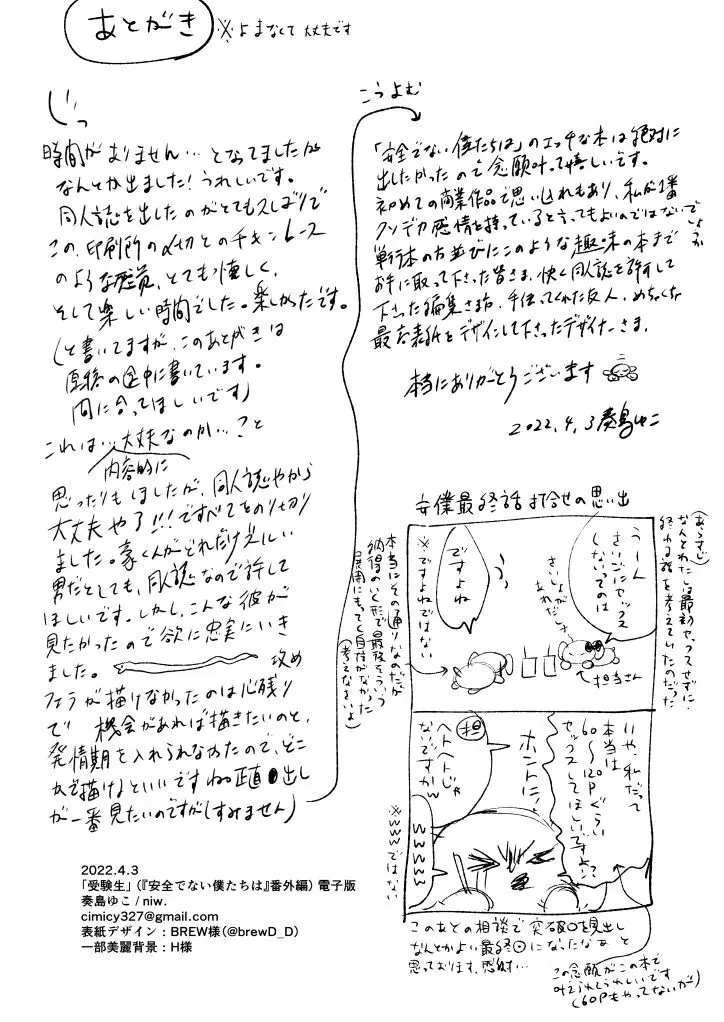 あとがき
※よまなくて大丈夫です
時間がありません…となってましたが
なんとか出ました!うれしいです。
同人誌を出したのがとても久しぶりで
この、印刷所の〆切とのチキンレース
のような感覚、とても懐しく、
そして楽しい時間でした。楽しかったです。
(と書いてますが、このあとがきは
原稿の途中に書いています。
間に合ってほしいです)
これは…大丈夫なのか…?と
内容的に
思ったりもしましたが、同人誌やから
大丈夫や了!!!ですべてをのり切り
ました。豪くんがどれだけ
男だとしても、同人誌なので許して
ほしいです。しかし、こんな彼が
見たかったので欲に忠実にいき
ました。
攻め
フェラが描けなかったのは心残り
で 機会があれば描きたいのと、
発情期を入れられなかったので、どこ
かで描けるといいですね。正直 出し
が一番見たいのですが(すみません)
こうよむ
「安全でない僕たちは」のエッチな本は絶対に
出したかったので念願叶って嬉しいです。
初めての商業作品で思い入れもあり、私が1番
クソデカ感情を持っていると言ってもよいのではないでしょうか
単行本の方並びにこのような趣味の本まで
お手に取って下さった皆さま、快く同人誌を許して
下さった編集さま、手伝ってくれた友人、めちゃくちゃ
最高な表紙をデザインして下さったデザイナーさま、
本当にありがとうございます
2022.4.3 奏島ゆこ
安僕最終話打合せの思い出
(あらすじ)
なんとわたしは最初ヤッてせずに
終わる話を考えていたのだった
うーん
さいごにセックス
しないってのは
さいしょが
あれだしナ
←担当さん
うっ
ですよね
※ですよねではない
本当にその通りなのだが
納得のいく形で最後そういう
展開にもってく自信がなかった
(考えなさいよ)
いや、私だって
本当は
60〜120Pぐらい
セックスしてほしいですよ?
ホントに!
担
ヘトヘトじゃ
ないですかw
wwwww
※wwwではない
このあとの相談で突破口を見出し
なんとかよい最終回になったなぁと
思っております。感謝…
この念願がこの本で
叶えられてうれしいです
(60Pもやってないが)
2022.4.3
「受験生」(『安全でない僕たちは』番外編) 電子版
奏島ゆこ / niw.
cimicy327@gmail.com
表紙デザイン：BREW様(@brewD_D)
一部美麗背景：H様